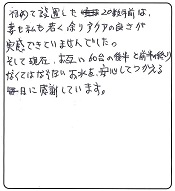 初めて設置した20数年前は、
妻も私も若く余りアクアの良さが
実感できていませんでした。
そして現在、お互い60台の後半と前半の終り
なくてはならないお水を、安心してつかえる
毎日に感謝しています。